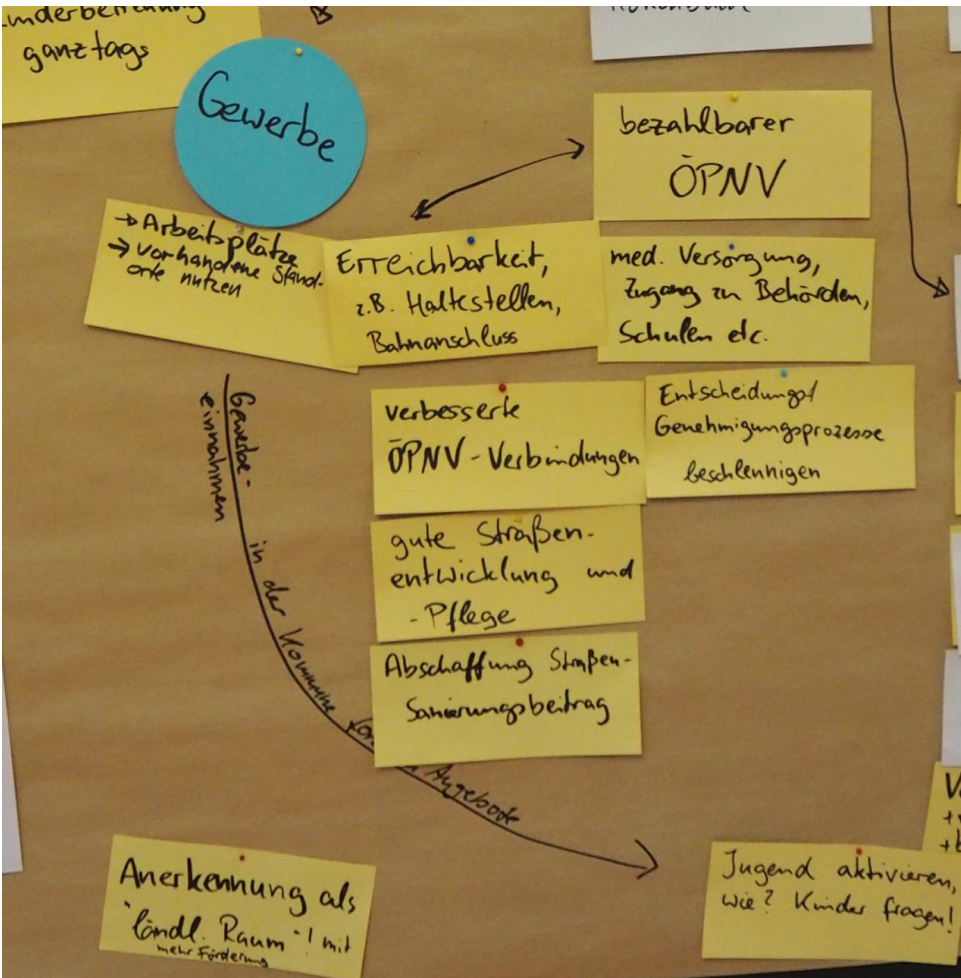 ganztags
Gewerbe
bezahlbarer
ÖPNV
→ Arbeitsplätze
→ vorhandene Stand-
orte nutzen
Erreichbarkeit,
z.B. Haltestellen,
Bahnanschluss
med. Versorgung,
Zugang zu Behörden,
Schulen etc.
verbesserte
ÖPNV-Verbindungen
Entscheidungs/
Genehmigungsprozesse
beschleunigen
gute Straßen-
entwicklung und
-Pflege
Abschaffung Straßen-
Sanierungsbeitrag
Gewerbe-
einnahmen
in der Kommune
Angebote
Anerkennung als
"ländl. Raum"! mit
mehr Förderung
Jugend aktivieren,
wie? Kinder fragen!